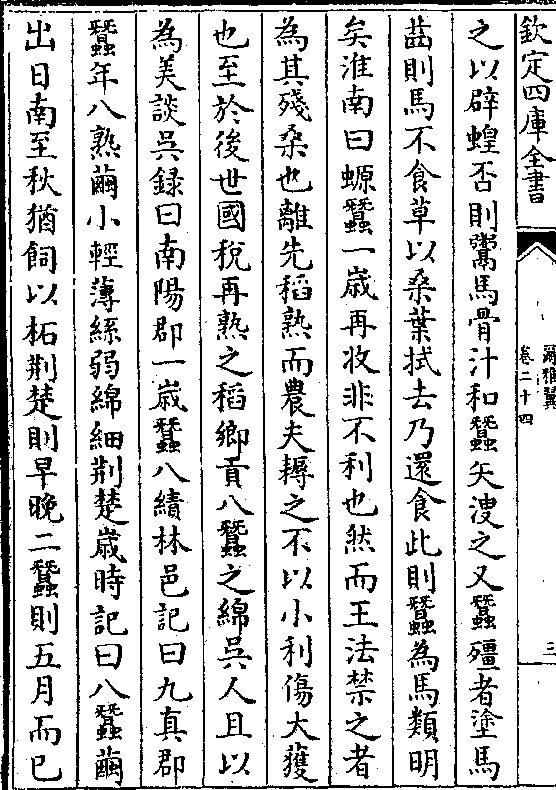 欽定四庫全書
爾雅翼
卷二十四
三
之以辟蝗否則鬻馬骨汁和蠶矢溲之又蠶殭者塗馬
齒則馬不食草以桑葉拭去乃還食此則蠶為馬類明
矣淮南曰螈蠶一歲再收非不利也然而王法禁之者
為其殘桑也離先稻熟而農夫耨之不以小利傷大獲
也至於後世國稅再熟之稻鄉貢八蠶之綿吳人且以
為美談吳録曰南陽郡一歲蠶八績林邑記曰九真郡
蠶年八熟繭小輕薄絲弱綿細荆楚歲時記曰八蠶繭
出日南至秋猶飼以柘荆楚則早晚二蠶則五月而已